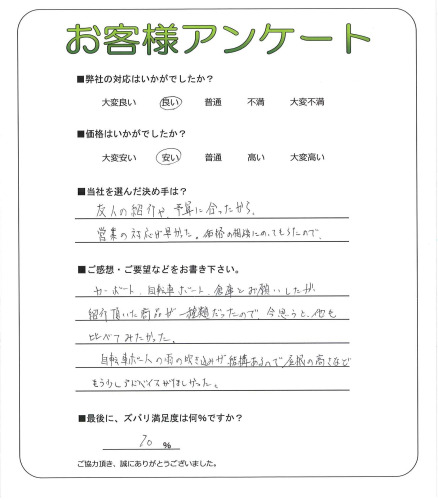 お客様アンケート
■弊社の対応はいかがでしたか？
大変良い 良い 普通 不満 大変不満
■価格はいかがでしたか？
大変安い 安い 普通 高い 大変高い
■当社を選んだ決め手は？
友人の紹介や、予算に合ったから。
営業の対応が早かった。価格の相談にのってもらえたので、
■ご感想・ご要望などをお書き下さい。
カーポート、自転車ポート、倉庫とお願いしたが
紹介頂いた商品が一種類だったので、今思うと、他も
比べてみたかった。
自転車ポートへの雨の吹き込みが結構あるので屋根の高さなど
もう少しアドバイスがほしかった。
■最後に、ズバリ満足度は何％ですか？
70 ％
ご協力頂き、誠にありがとうございました。